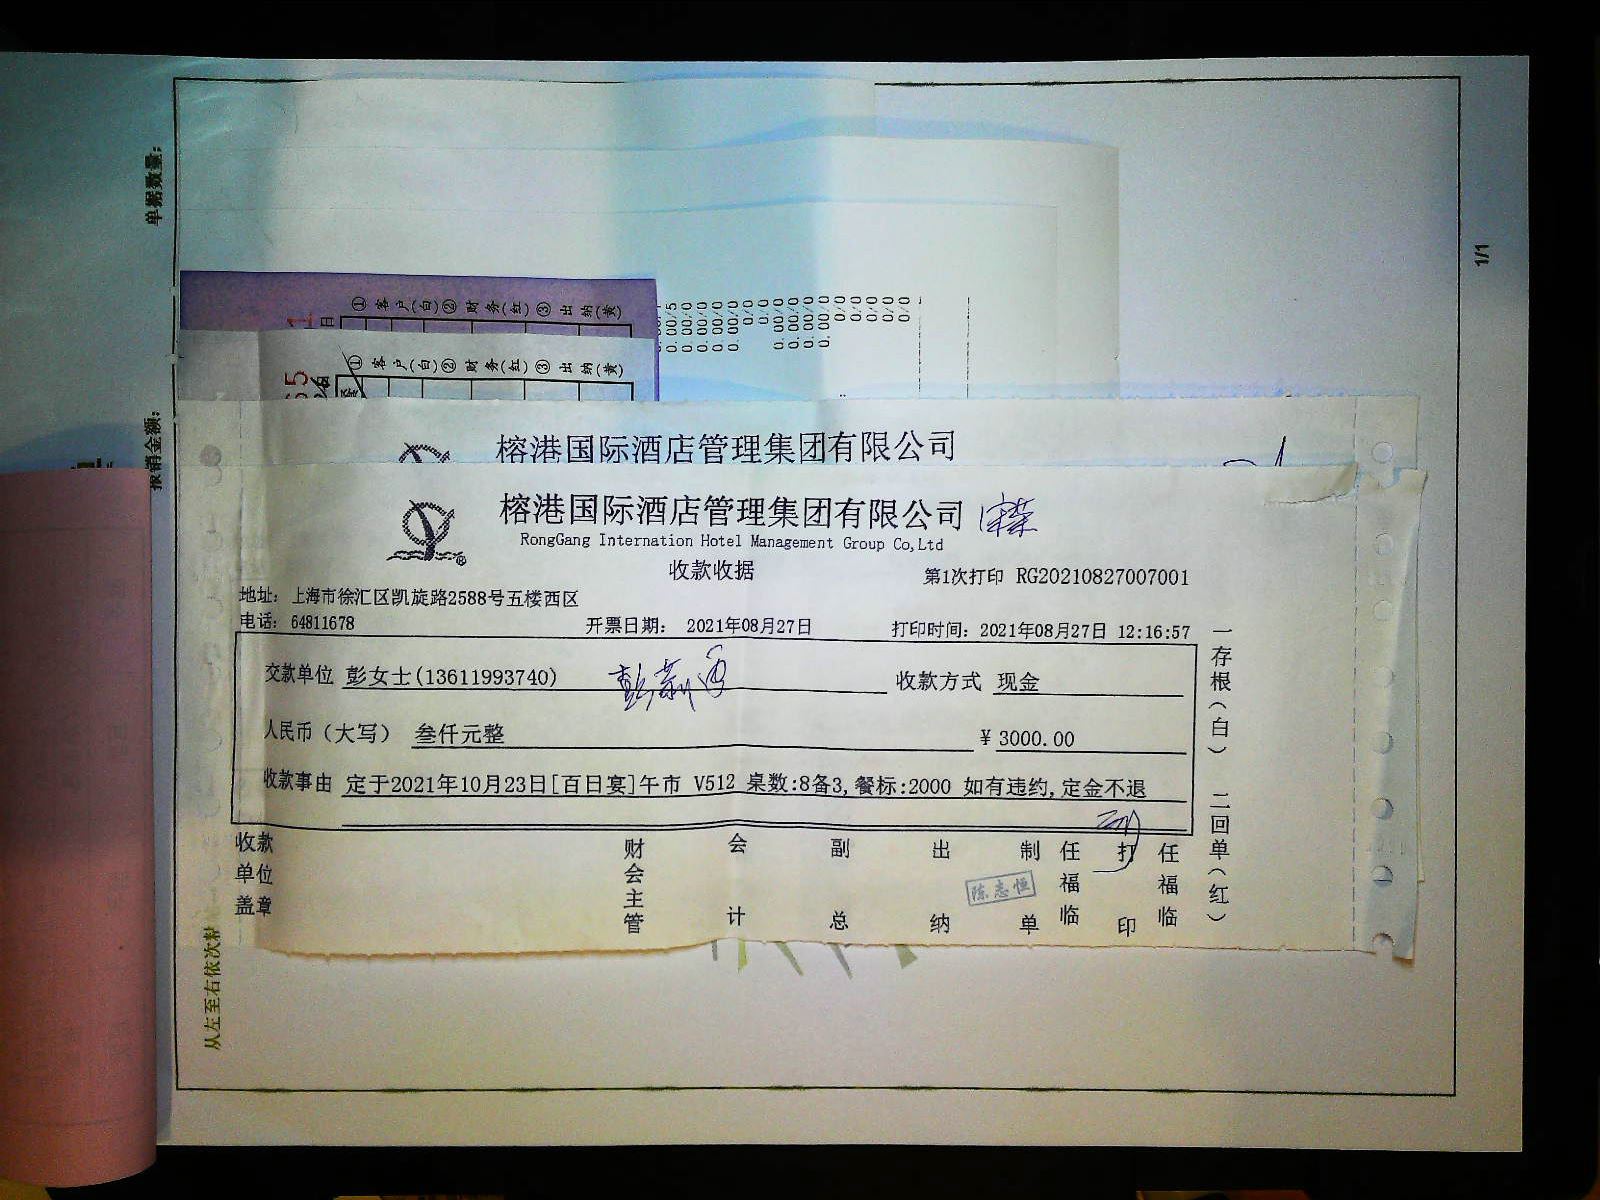 单据数量：
1/1
报销金额：
从左至右依次粘
①客户(白)②财务(红)③出纳(黄)
日
①客户(白)②财务(红)③出纳(黄)
榕港国际酒店管理集团有限公司
榕港国际酒店管理集团有限公司
RongGang Internation Hotel Management Group Co,Ltd
收款收据
第1次打印 RG20210827007001
地址: 上海市徐汇区凯旋路2588号五楼西区
电话: 64811678 开票日期: 2021年08月27日 打印时间: 2021年08月27日 12:16:57
交款单位 彭女士(13611993740) 收款方式 现金
人民币（大写） 叁仟元整 ¥ 3000.00
收款事由 定于2021年10月23日[百日宴]午市 V512 桌数:8备3,餐标:2000 如有违约,定金不退
收款单位盖章 财会主管 会计 副总 出纳 制单 任福临 打印 任福临
陈志恒
一存根(白) 二回单(红)